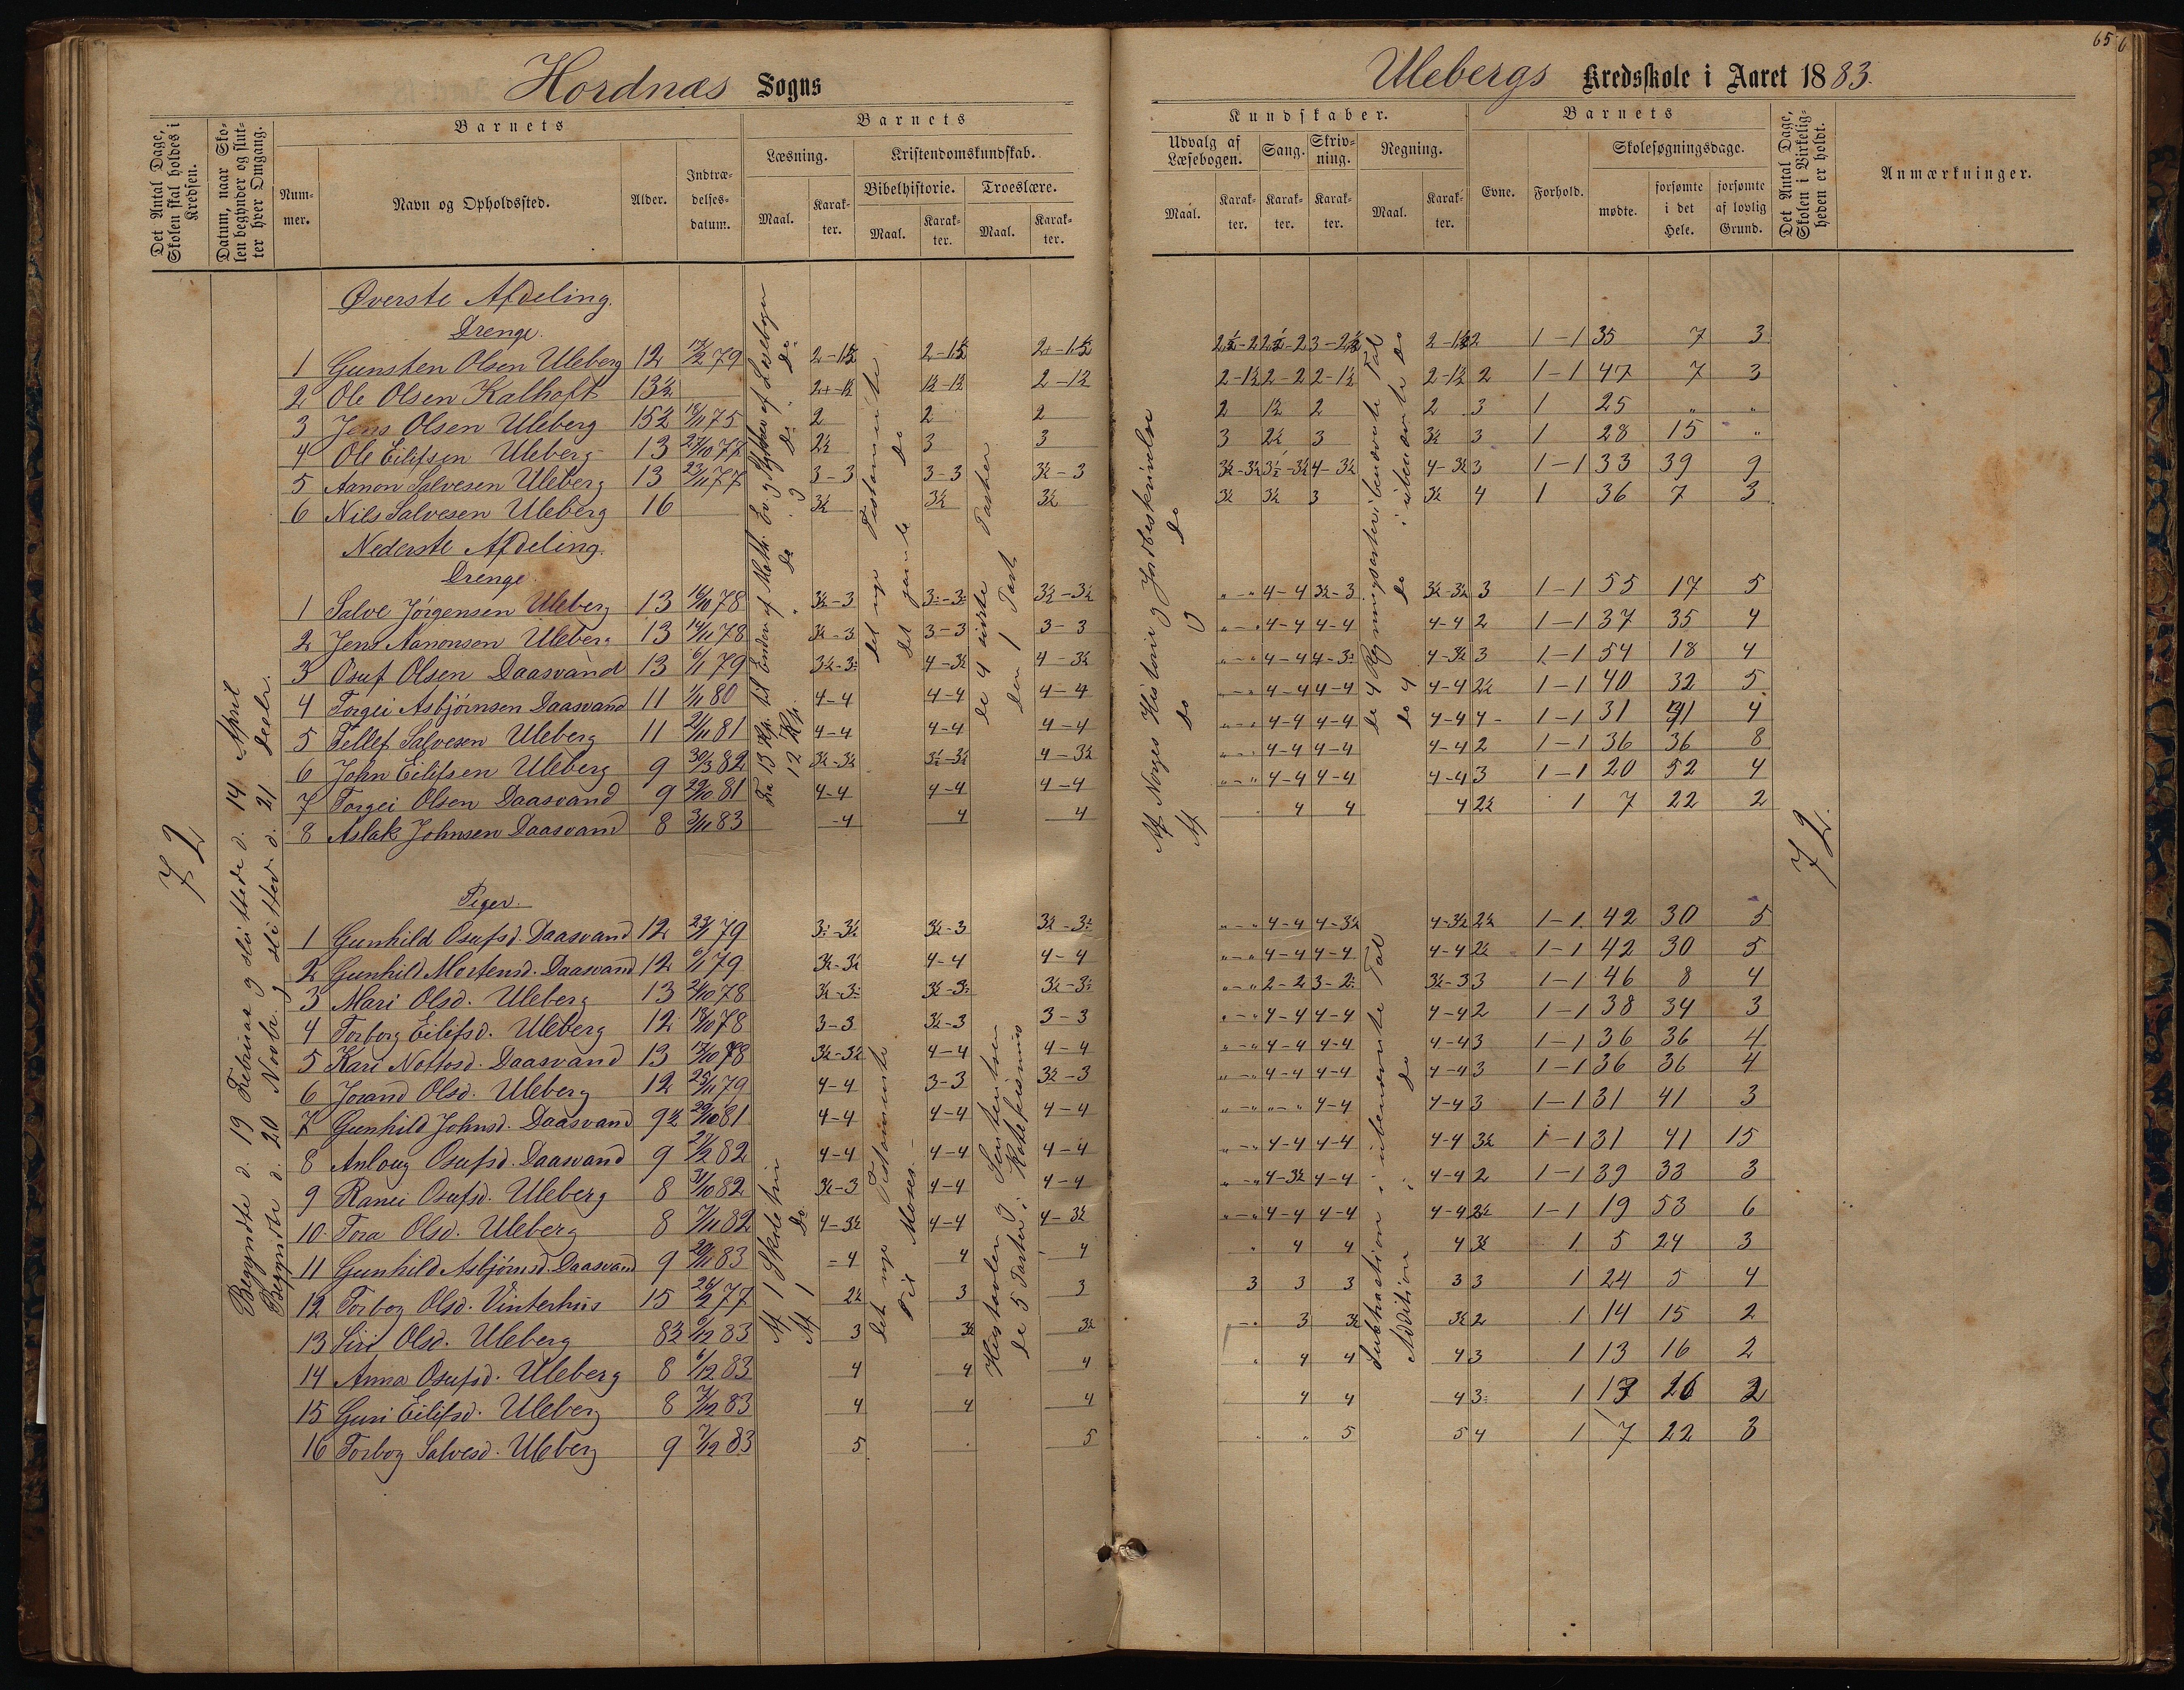 Hordnæs Sogns
Det Antal Dage, Skolen skal holdes i Kredsen.
Datum, naar Skolen begynder og slutter hver Omgang.
Barnets
Nummer.
Navn og Opholdssted.
Alder.
Indtrædelsesdatum.
Barnets
Læsning.
Maal.
Karakter.
Kristendomskundskab.
Bibelhistorie.
Maal.
Karakter.
Troeslære.
Maal.
Karakter.
72
Begyndte d. 19 Februar og sluttede d. 14 April
Begyndte d. 20 Novbr. og sluttede d. 21 Decbr.
Øverste Afdeling.
Drenge.
1 Gunsten Olsen Uleberg 12 79 2-1½ 2-1½ 2-1½
2 Ole Olsen Kalhoft 13½ 2-1½ 1½-1½ 2-1½
3 Jens Olsen Uleberg 15½ 18/11 75 2 2 2
4 Ole Eilifsen Uleberg 13 27/10 77 2½ 3 3
5 Aanon Salvesen Uleberg 13 23/11 77 3-3 3-3 3½-3
6 Nils Salvesen Uleberg 16 3½ 3½ 3½
Nederste Afdeling.
Drenge.
1 Salve Jörgensen Uleberg 13 16/10 78 3½-3 3-3 3½-3½
2 Jens Aanonsen Uleberg 13 14/11 78 3½-3 3-3 3-3
3 Osuf Olsen Daasvand 13 6/1 79 3½-3 4-3½ 4-3½
4 Torgei Asbjörnsen Daasvand 11 1/11 80 4-4 4-4 4-4
5 Tellef Salvesen Uleberg 11 21/11 81 4-4 4-4 4-4
6 John Eilifsen Uleberg 9 30/3 82 3½-3½ 3½-3½ 4-3½
7 Torgei Olsen Daasvand 9 29/10 81 4-4 4-4 4-4
8 Aslak Johnsen Daasvand 8 3/11 83 -4 4 4
Piger.
1 Gunhild Osufsd. Daasvand 12 23/1 79 3-3½ 3½-3 3½-3
2 Gunhild Mortensd. Daasvand 12 6/1 79 3½-3½ 4-4 4-4
3 Mari Olsd. Uleberg 13 21/10 78 3½-3 3½-3 3½-3
4 Torborg Eilifsd. Uleberg 12 18/10 78 3-3 3½-3 3-3
5 Kari Nottosd. Daasvand 13 78 3½-3½ 4-4 4-4
6 Jorand Olsd. Uleberg 12 25/11 79 4-4 3-3 3½-3
7 Gunhild Johnsd. Daasvand 9½ 29/10 81 4-4 4-4 4-4
8 Anloug Osufsd. Daasvand 9 82 4-4 4-4 4-4
9 Ranei Osufsd. Uleberg 8 31/10 82 3½-3 4-4 4-4
10 Tora Olsd. Uleberg 8 7/11 82 4-3½ 4-4 4-3½
11 Gunhild Asbjörnsd. Daasvand 9 83 -4 4 4
12 Torbog Olsd. Vinterhus 15 26/2 77 2½ 3 3
13 Siri Olsd. Uleberg 8½ 6/12 83 3 3½ 3½
14 Anna Osufsd. Uleberg 8 6/12 83 4 4 4
15 Guri Eilifsd. Uleberg 8 7/12 83 4 4 4
16 Torbog Salvesd. Uleberg 9 7/12 83 5 5
Fra 13 Kp. til Enden af Math. Ev. og Stykker af Læsebogen
12 Kp.
do
Af 1 Skoletrin
Af 1 do
det nye Testamente
det gamle do
Det nye Testamente
Til Moses.
de 4 sidste Parter
den 1 Part
Hustavlen og
de 5 Parter i Katekismus
65
Ulebergs Kredsskole i Aaret 1883.
Kundskaber.
Udvalg af Læsebogen.
Maal.
Karakter.
Sang.
Karakter.
Skrivning.
Karakter.
Regning.
Maal.
Karakter.
Barnets
Evne.
Forhold.
Skolesøgningsdage.
mødte.
forsømte i det Hele.
forsømte af lovlig Grund.
Det Antal Dage, Skolen i Virkeligheden er holdt.
Anmærkninger.
Af Norges Historie og Jordbeskrivelse
Af do og do
de 4 Regningsarter i benævnte Tal
do 4 do i ubenævnte do
Subtraktion i ubenævnte Tal
Addition i do
2½-2 2½-2 3-2½ 2-1½ 2 1-1 35 7 3
2-1½ 2-2 2-1½ 2-1½ 2 1-1 47 7 3
2 1½ 2 2 3 1 25 " "
3 2½ 3 3½ 3 1 28 15 "
3½-3½ 3½-3½ 4-3½ 4-3½ 3 1-1 33 39 9
3½ 3½ 3 3½ 4 1 36 7 3
"-" 4-4 3½-3 3½-3½ 3 1-1 55 17 5
"-" 4-4 4-4 4-4 2 1-1 37 35 4
"-" 4-4 4-3 4-3½ 3 1-1 54 18 4
"-" 4-4 4-4 4-4 2½ 1-1 40 32 5
"-" 4-4 4-4 4-4 4 1-1 31 41 4
"-" 4-4 4-4 4-4 2 1-1 36 36 8
"-" 4-4 4-4 4-4 3 1-1 20 52 4
4 4 4 2½ 1 7 22 2
72
"-" 4-4 4-3½ 4-3½ 2½ 1-1 42 30 5
"-" 4-4 4-4 4-4 2½ 1-1 42 30 5
"-" 2-2 3-2 3½-3 3 1-1 46 8 4
"-" 4-4 4-4 4-4 2 1-1 38 34 3
"-" 4-4 4-4 4-4 3 1-1 36 36 4
"-" 4-4 4-4 4-4 3 1-1 36 36 4
"-" "-" 4-4 4-4 3 1-1 31 41 3
"-" 4-4 4-4 4-4 3½ 1-1 31 41 15
"-" 4-3½ 4-4 4-4 2 1-1 39 33 3
"-" 4-4 4-4 4-4 2½ 1-1 19 53 6
" 4 4 4 3½ 1 5 24 3
3 3 3 3 3 1 24 5 4
"-" 3 3½ 3½ 2 1 14 15 2
" 4 4 4 3 1 13 16 2
4 4 4 3 1 13 16 2
" " 5 5 4 1 7 22 3